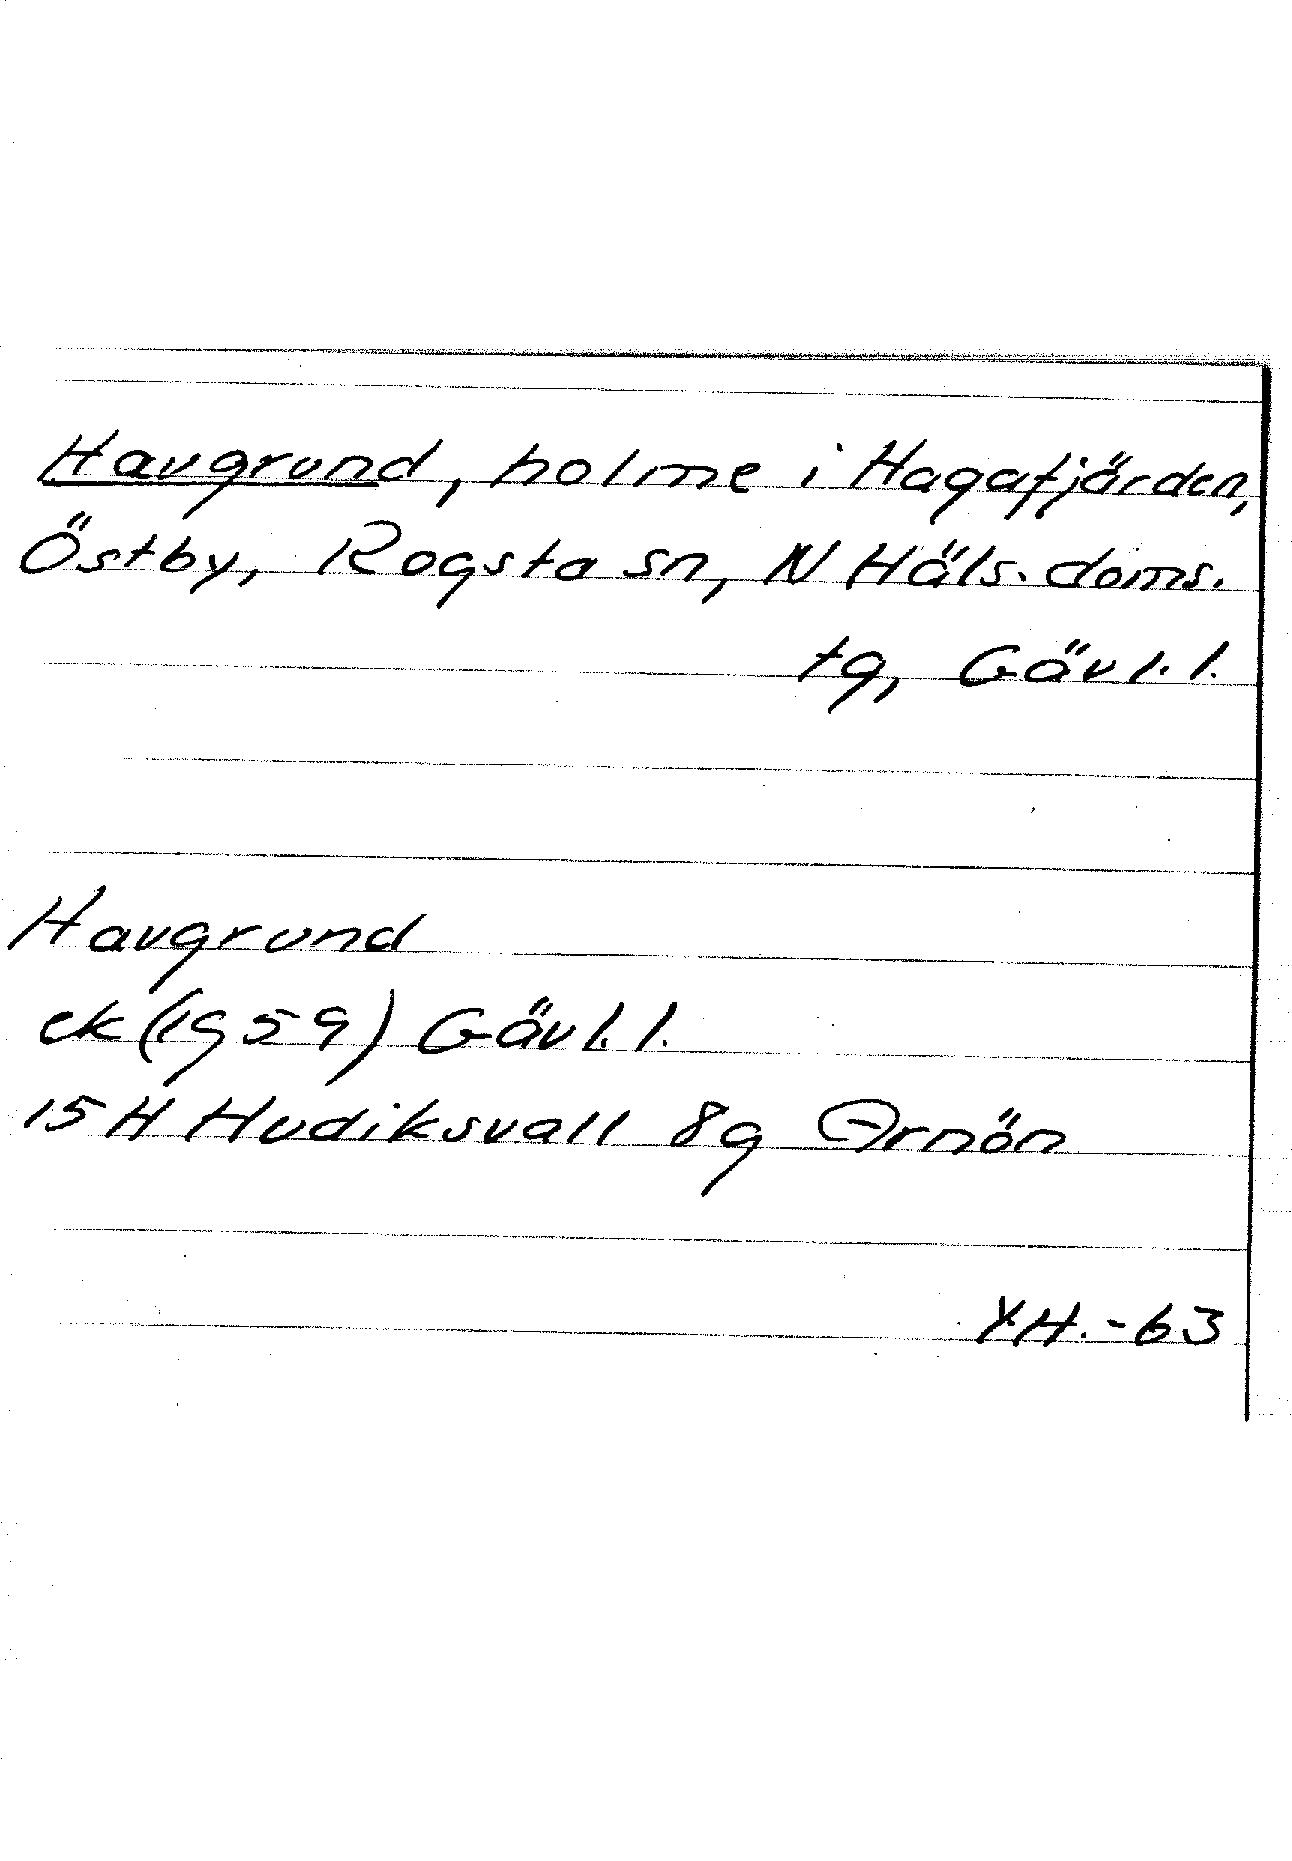 Havgrund, holme i Hagafjärden,
Östby, Rogsta sn, N Häls. doms.
tg, Gävl. l.
Havgrund
ek (1959) Gävl. l.
15 H Hudiksvall 8g Arnön
YH. -63